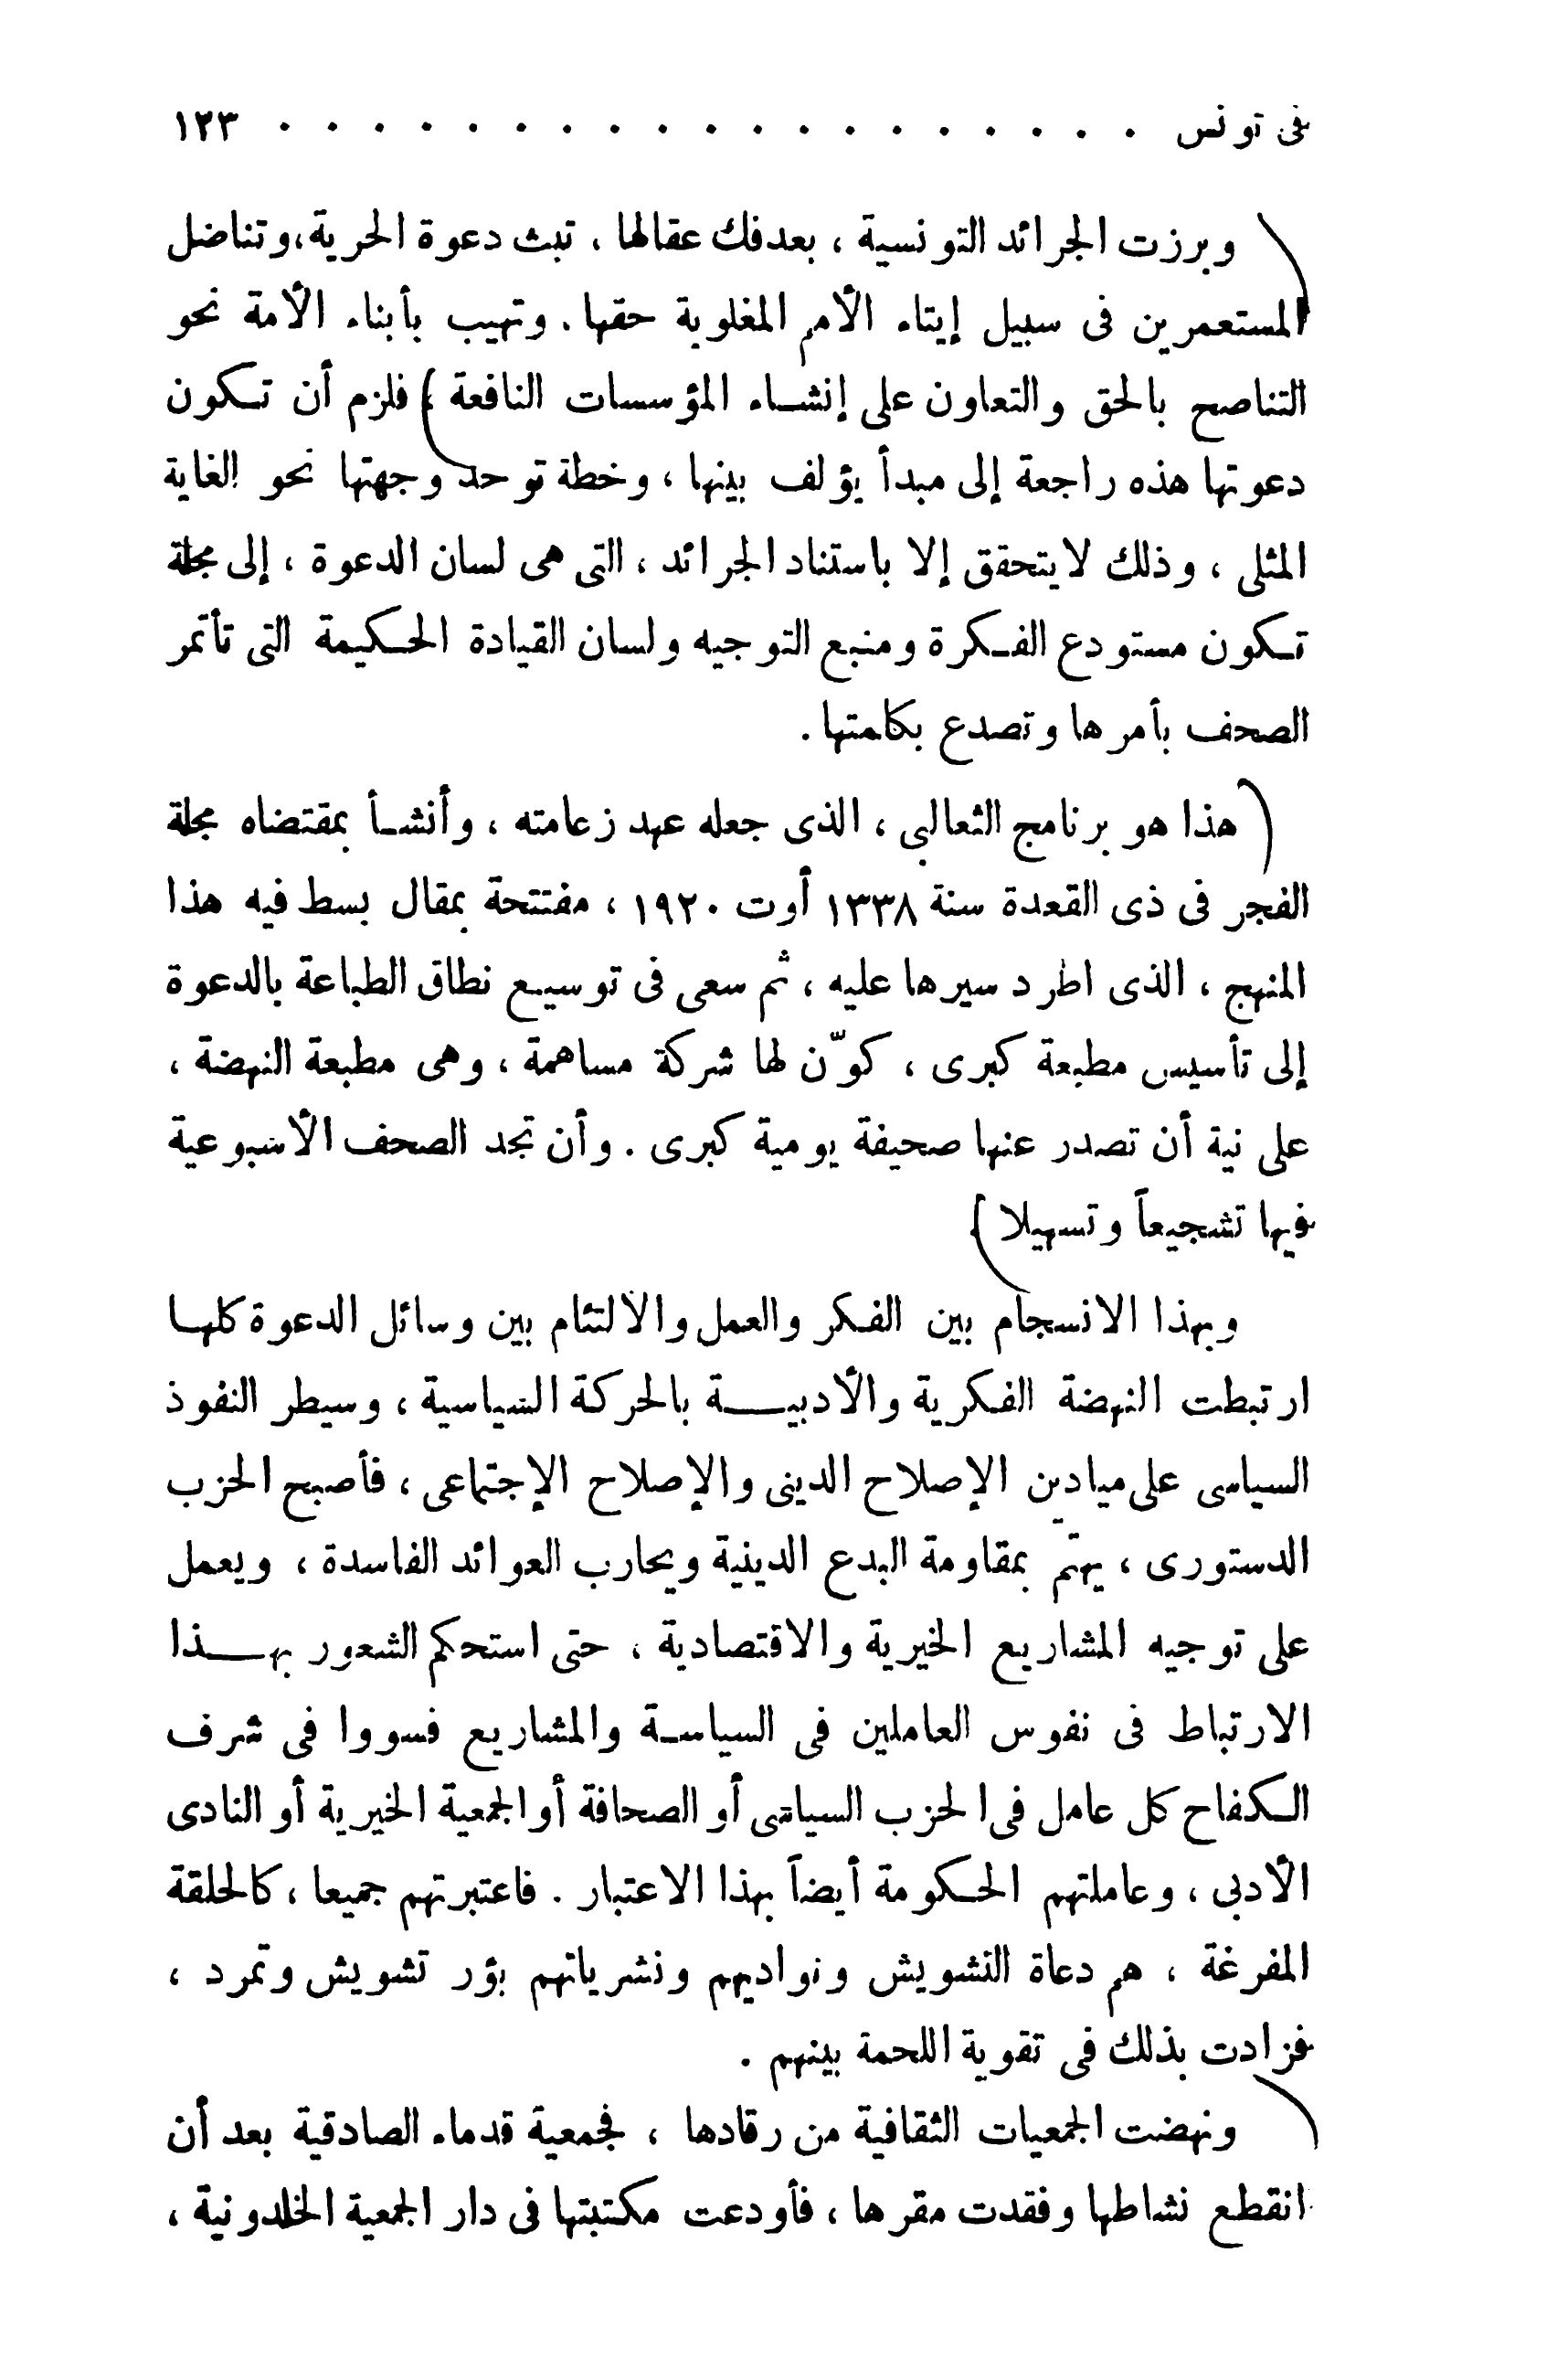 فى تونس . . . . . . . . . . . . . . . . . . . ١٢٣
وبرزت الجرائد التونسية ، بعدفك عقالها ، تبث دعوة الحرية،وتناضل
المستعمرين فى سبيل إيتاء الأمم المغلوبة حقها . وتهيب بأبناء الأمة نحو
التناصح بالحق والتعاون على إنشاء المؤسسات النافعة ، فلزم أن تكون
دعوتها هذه راجعة إلى مبدأ يؤلف بينها ، وخطة توحد وجهتها نحو الغاية
المثلى ، وذلك لا يتحقق إلا باستناد الجرائد ، التى هى لسان الدعوة ، إلى مجلة
تكون مستودع الفكرة ومنبع التوجيه ولسان القيادة الحكيمة التى تأتمر
الصحف بأمرها وتصدع بكلمتها .
هذا هو برنامج الثعالبى ، الذى جعله عهد زعامته ، وأنشأ بمقتضاه مجلة
الفجر فى ذى القعدة سنة ١٣٣٨ أوت ١٩٢٠ ، مفتتحة بمقال بسط فيه هذا
المنهج ، الذى اطرد سيرها عليه ، ثم سعى فى توسيع نطاق الطباعة بالدعوة
إلى تأسيس مطبعة كبرى ، كوّن لها شركة مساهمة ، وهى مطبعة النهضة ،
على نية أن تصدر عنها صحيفة يومية كبرى . وأن تجد الصحف الأسبوعية
فيها تشجيعاً وتسهيلا .
وبهذا الانسجام بين الفكر والعمل والالتئام بين وسائل الدعوة كلها
ارتبطت النهضة الفكرية والأدبية بالحركة السياسية ، وسيطر النفوذ
السياسى على ميادين الإصلاح الدينى والإصلاح الإجتماعى ، فأصبح الحزب
الدستورى ، يهتمّ بمقاومة البدع الدينية ويحارب العوائد الفاسدة ، ويعمل
على توجيه المشاريع الخيرية والاقتصادية ، حتى استحكم الشعور بهذا
الارتباط فى نفوس العاملين فى السياسة والمشاريع فسووا فى شرف
الكفاح كل عامل فى الحزب السياسى أو الصحافة أو الجمعية الخيرية أو النادى
الأدبى ، وعاملتهم الحكومة أيضاً بهذا الاعتبار . فاعتبرتهم جميعا ، كالحلقة
المفرغة ، هم دعاة التشويش ونواديهم ونشرياتهم بؤر تشويش وتمرد ،
فزادت بذلك فى تقوية اللحمة بينهم .
ونهضت الجمعيات الثقافية من رقادها ، فجمعية قدماء الصادقية بعد أن
انقطع نشاطها وفقدت مقرها ، فأودعت مكتبتها فى دار الجمعية الخلدونية ،